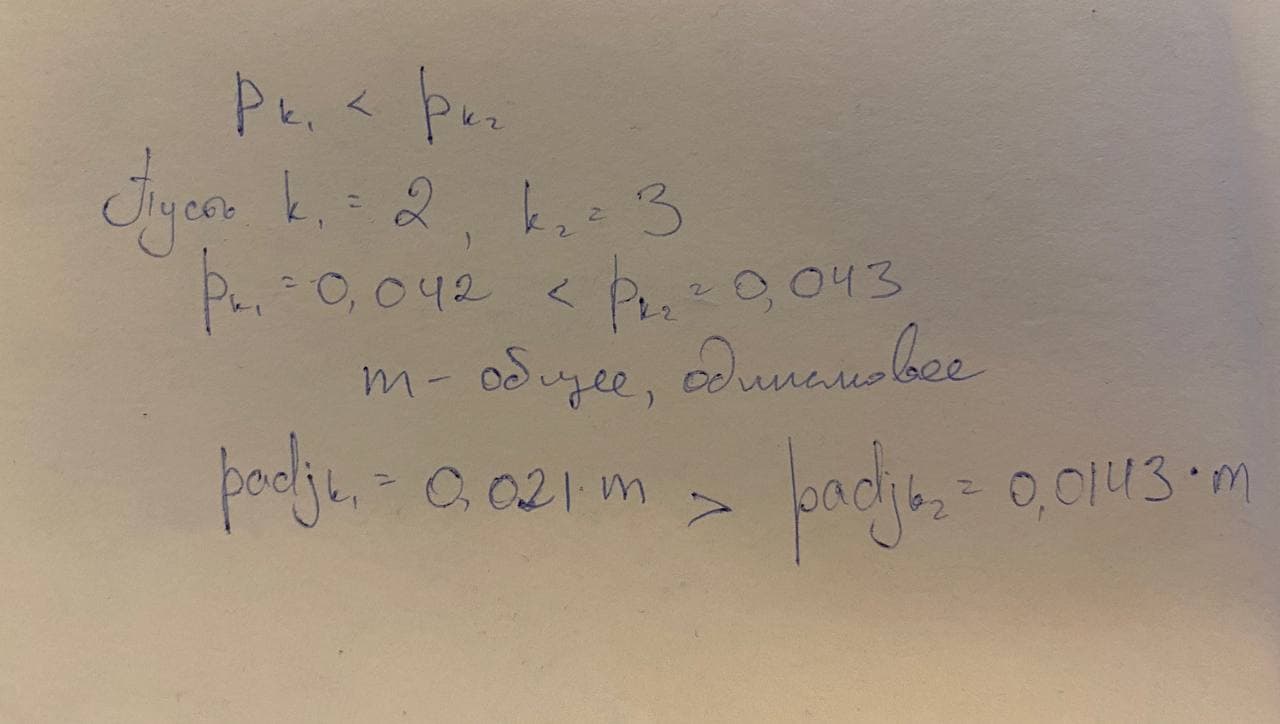 p k₁ < p k₂
Пусть k₁ = 2, k₂ = 3
p k₁ = 0,042 < p k₂ = 0,043
m - общее, одинаковее
padj k₁ = 0,021·m > padj k₂ = 0,0143·m